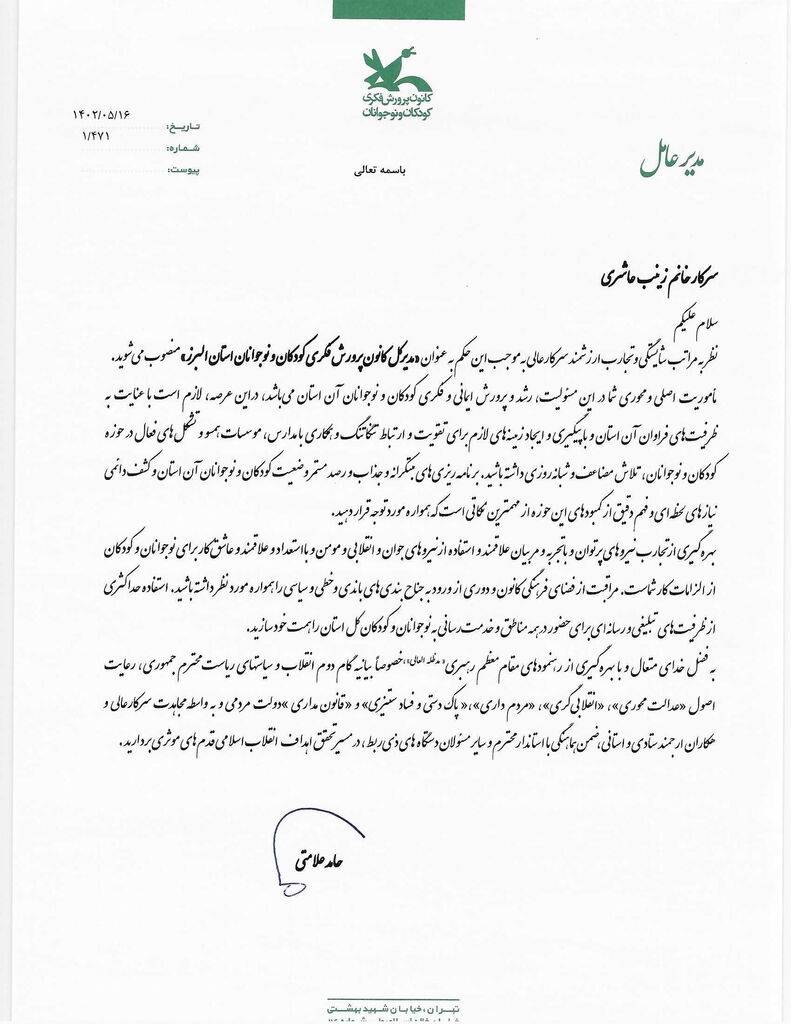 کانون پرورش فکری
کودکان و نوجوانان
۱۴۰۲/۰۵/۱۶
تاریخ:
۱/۴۷۱
شماره:
پیوست:
مدیر عامل
باسمه تعالی
سرکار خانم زینب عاشری
سلام علیکم
نظر به مراتب شایستگی و تجارب ارزشمند سرکارعالی به موجب این حکم به عنوان «مدیرکل کانون پرورش فکری کودکان و نوجوانان استان البرز» منصوب می‌شوید.
ماموریت اصلی و محوری شما در این مسئولیت، رشد و پرورش ایمانی و فکری کودکان و نوجوانان آن استان می‌باشد، در این عرصه، لازم است با عنایت به
ظرفیت‌های فراوان آن استان و با پیگیری و ایجاد زمینه‌های لازم برای تقویت و ارتباط تنگاتنگ و همکاری با مدارس، موسسات همسو و تشکل‌های فعال در حوزه
کودکان و نوجوانان، تلاش مضاعف و شبانه روزی داشته باشید. برنامه ریزی‌های مبتکرانه و جذاب و رصد مستمر وضعیت کودکان و نوجوانان آن استان و کشف دائمی
نیازهای لحظه‌ای و فهم دقیق از کمبودهای این حوزه از مهمترین نکاتی است که همواره مورد توجه قرار دهید.
بهره گیری از تجارب نیروهای پرتوان و باتجربه و مربیان علاقمند و استفاده از نیروهای جوان و انقلابی و مومن و بااستعداد و علاقمند و عاشق کار برای نوجوانان و کودکان
از الزامات کار شماست. مراقبت از فضای فرهنگی کانون و دوری از ورود به جناح بندی‌های باندی و خطی و سیاسی را همواره مورد نظر داشته باشید. استفاده حداکثری
از ظرفیت‌های تبلیغی و رسانه‌ای برای حضور در همه مناطق و خدمت رسانی به نوجوانان و کودکان کل استان را همت خود سازید.
به فضل خدای متعال و با بهره گیری از رهنمودهای مقام معظم رهبری «مدظله العالی»، خصوصاً بیانیه گام دوم انقلاب و سیاستهای ریاست محترم جمهوری، رعایت
اصول «عدالت محوری»، «انقلابی گری»، «مردم داری»، «پاک دستی و فساد ستیزی» و «قانون مداری» دولت مردمی و به واسطه مجاهدت سرکارعالی و
همکاران ارجمند ستادی و استانی، ضمن هماهنگی با استاندار محترم و سایر مسئولان دستگاه های ذی ربط، در مسیر تحقق اهداف انقلاب اسلامی قدم های موثری بردارید.
حامد علامتی
تهران، خیابان شهید بهشتی